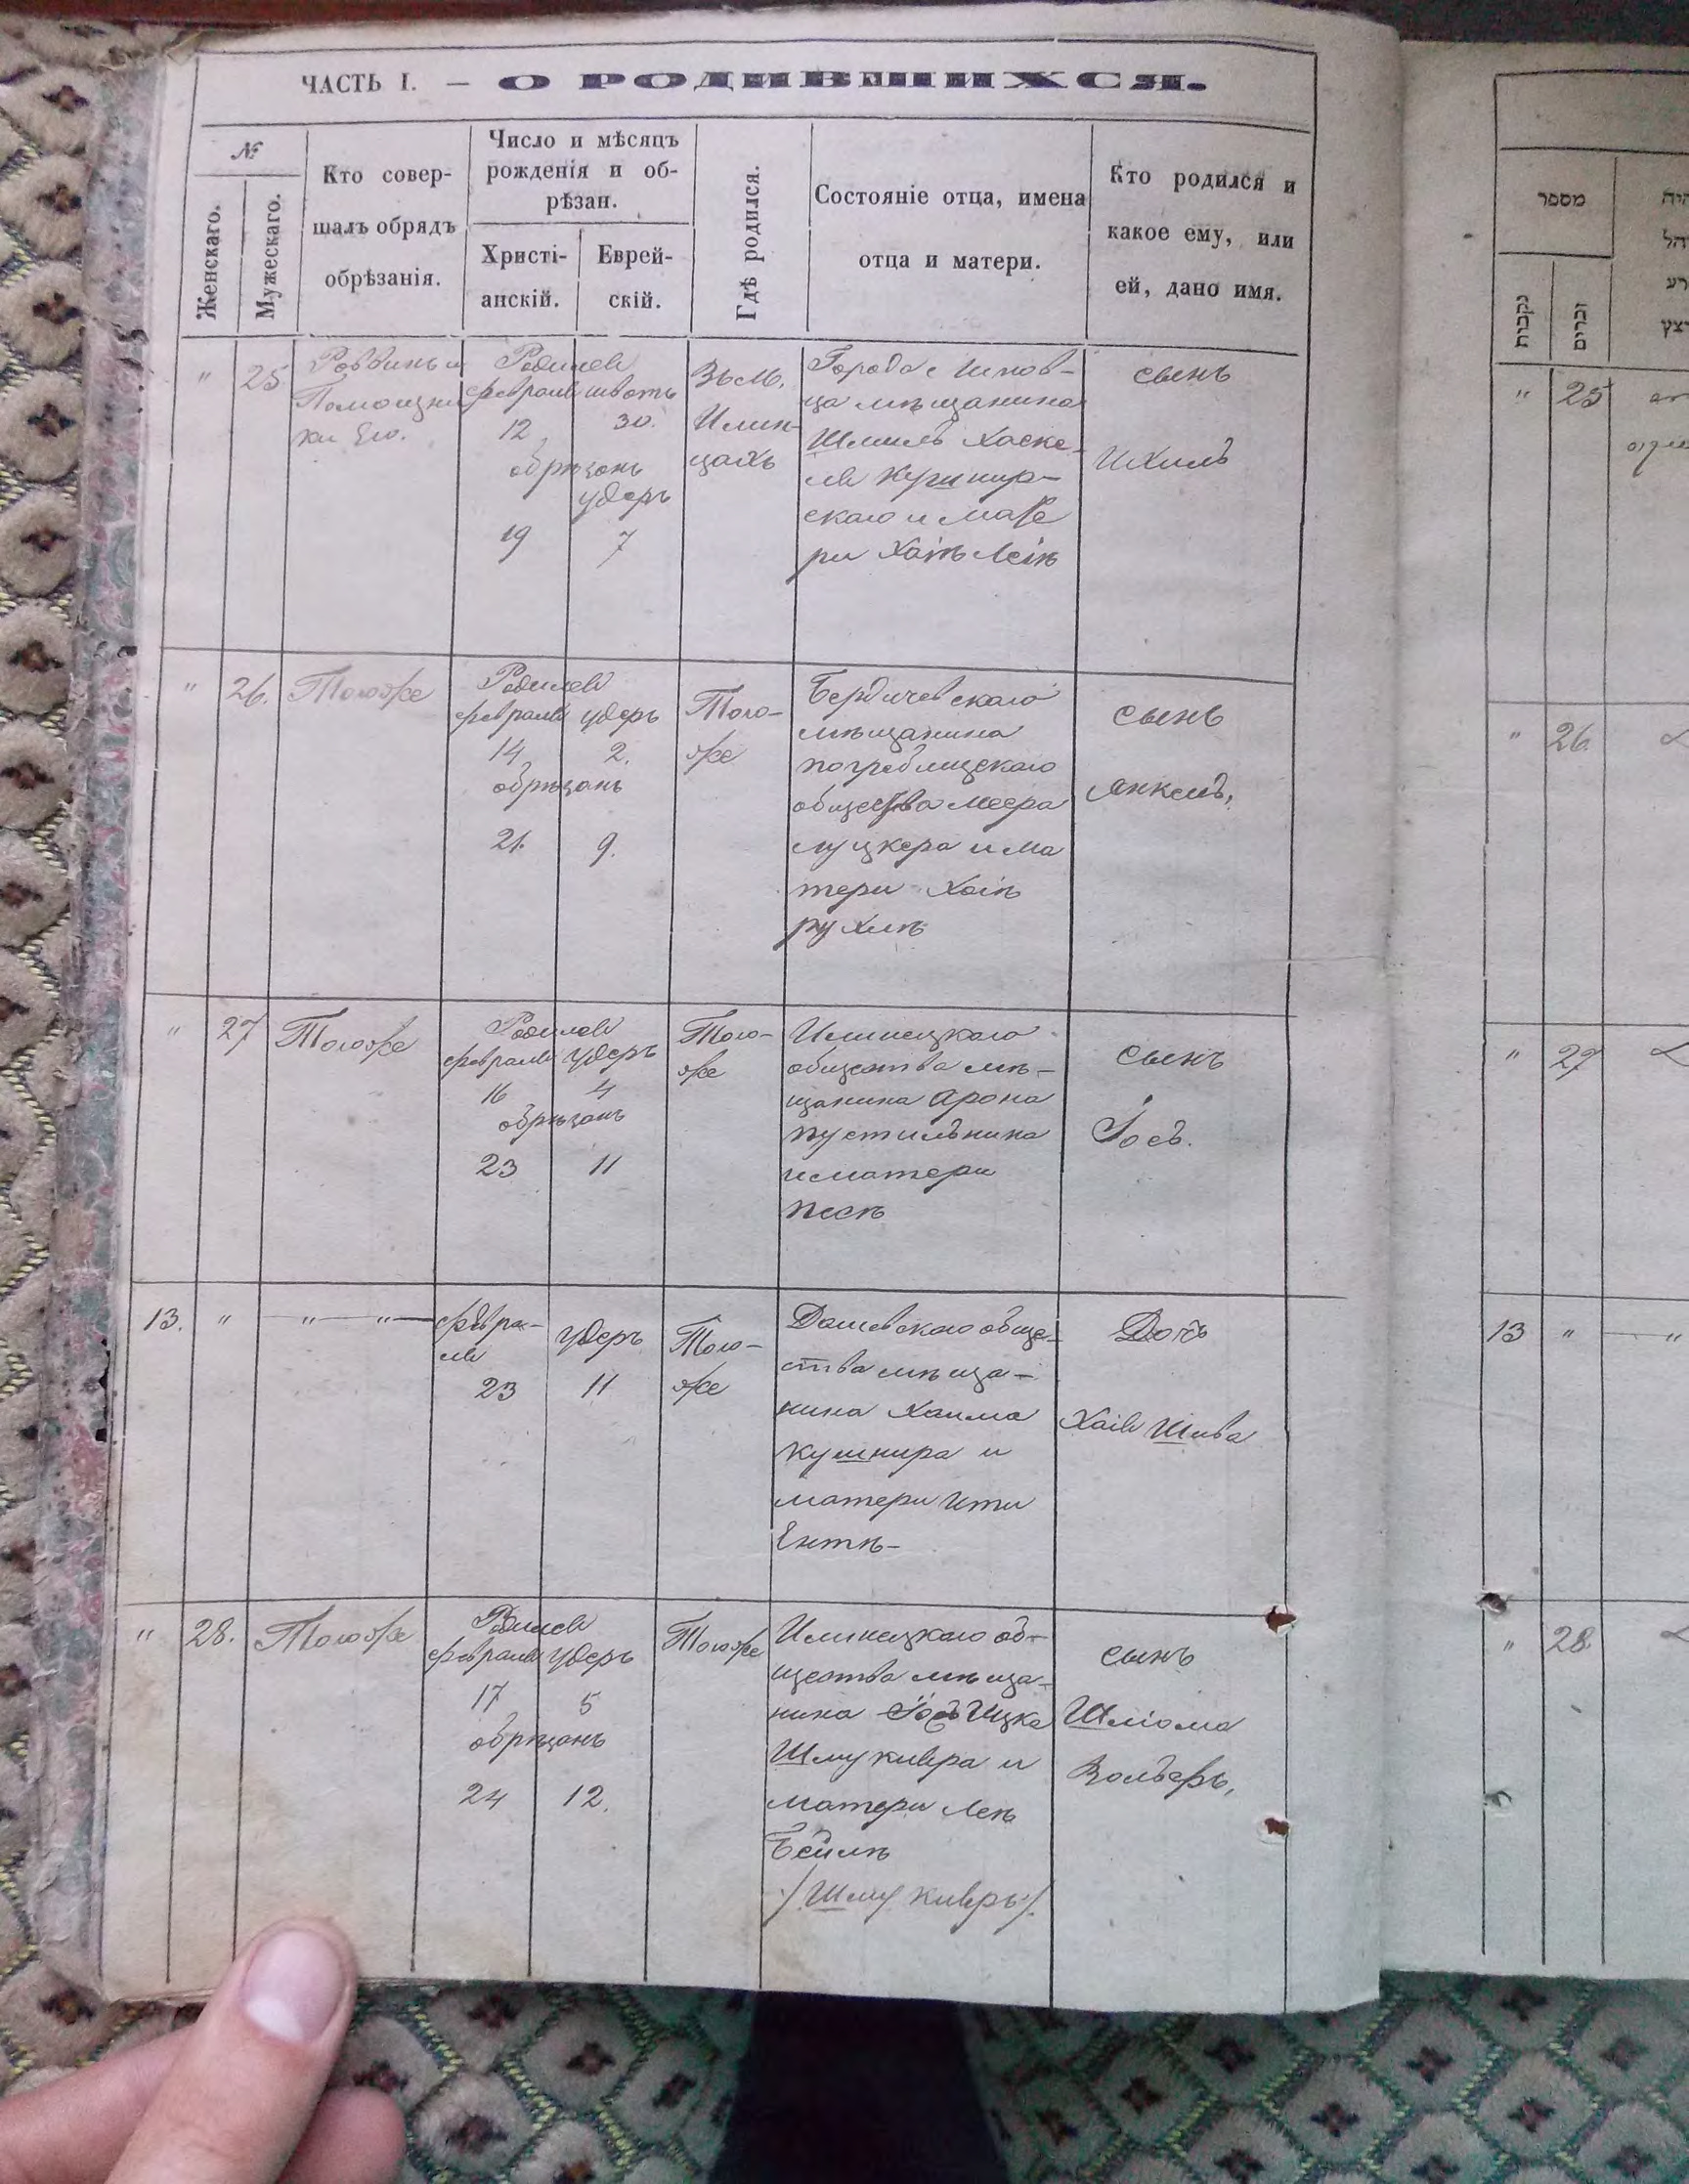 ЧАСТЬ I. — О РОДИВШИХСЯ.
№
Женскаго.
Мужескаго.
Кто совер-
шалъ обрядъ
обрѣзанія.
Число и мѣсяцъ
рожденія и об-
рѣзан.
Христі-
анскій.
Еврей-
скій.
Гдѣ родился.
Состояніе отца, имена
отца и матери.
Кто родился и
какое ему, или
ей, дано имя.
" 25
Раввинъ и
Помощни
ки Его.
Родился
февраля шватъ
12 30.
обрѣзанъ
удеръ
19 7
Въ м.
Илин-
цахъ
Города
ца мѣщанина
Шмиль Хаске-
ля Кушнир-
скаго и мате
ри Хаѣ Леѣ
сынъ
Ихиль
" 26. Тогоже
Родился
февраля удеръ
14 2.
обрѣзанъ
21. 9.
Того-
же
Бердичевскаго
мѣщанина
погребищскаго
общества Меера
луцкера и ма
тери Хаѣ
рухлѣ
сынъ
Янкель,
" 27 Тогоже
Родился
февраля удеръ
16 4
обрѣзанъ
23 11
Того-
же
Илинецкаго
общества мѣ-
щанина Арона
пустильника
и матери
песѣ
сынъ
Іось.
13. " " "
февра-
ля удеръ
23 11
Того-
же
Дашевскаго обще-
ства мѣща-
нина Хаима
кушнира и
матери Ити
Ентѣ-
Дочь
Хаія Шива
" 28. Тогоже
Родился
февраля удеръ
17 5
обрѣзанъ
24 12.
Тогоже
Илинецкаго об-
щества мѣща-
нина Іось Ицка
Шмуклера и
матери Леѣ
Бейлѣ
/Шмуклеръ/.
сынъ
Шліома
Вольфъ,
מספר
נקבות
זכרים
" 25
" 26.
" 27
13 " "
" 28